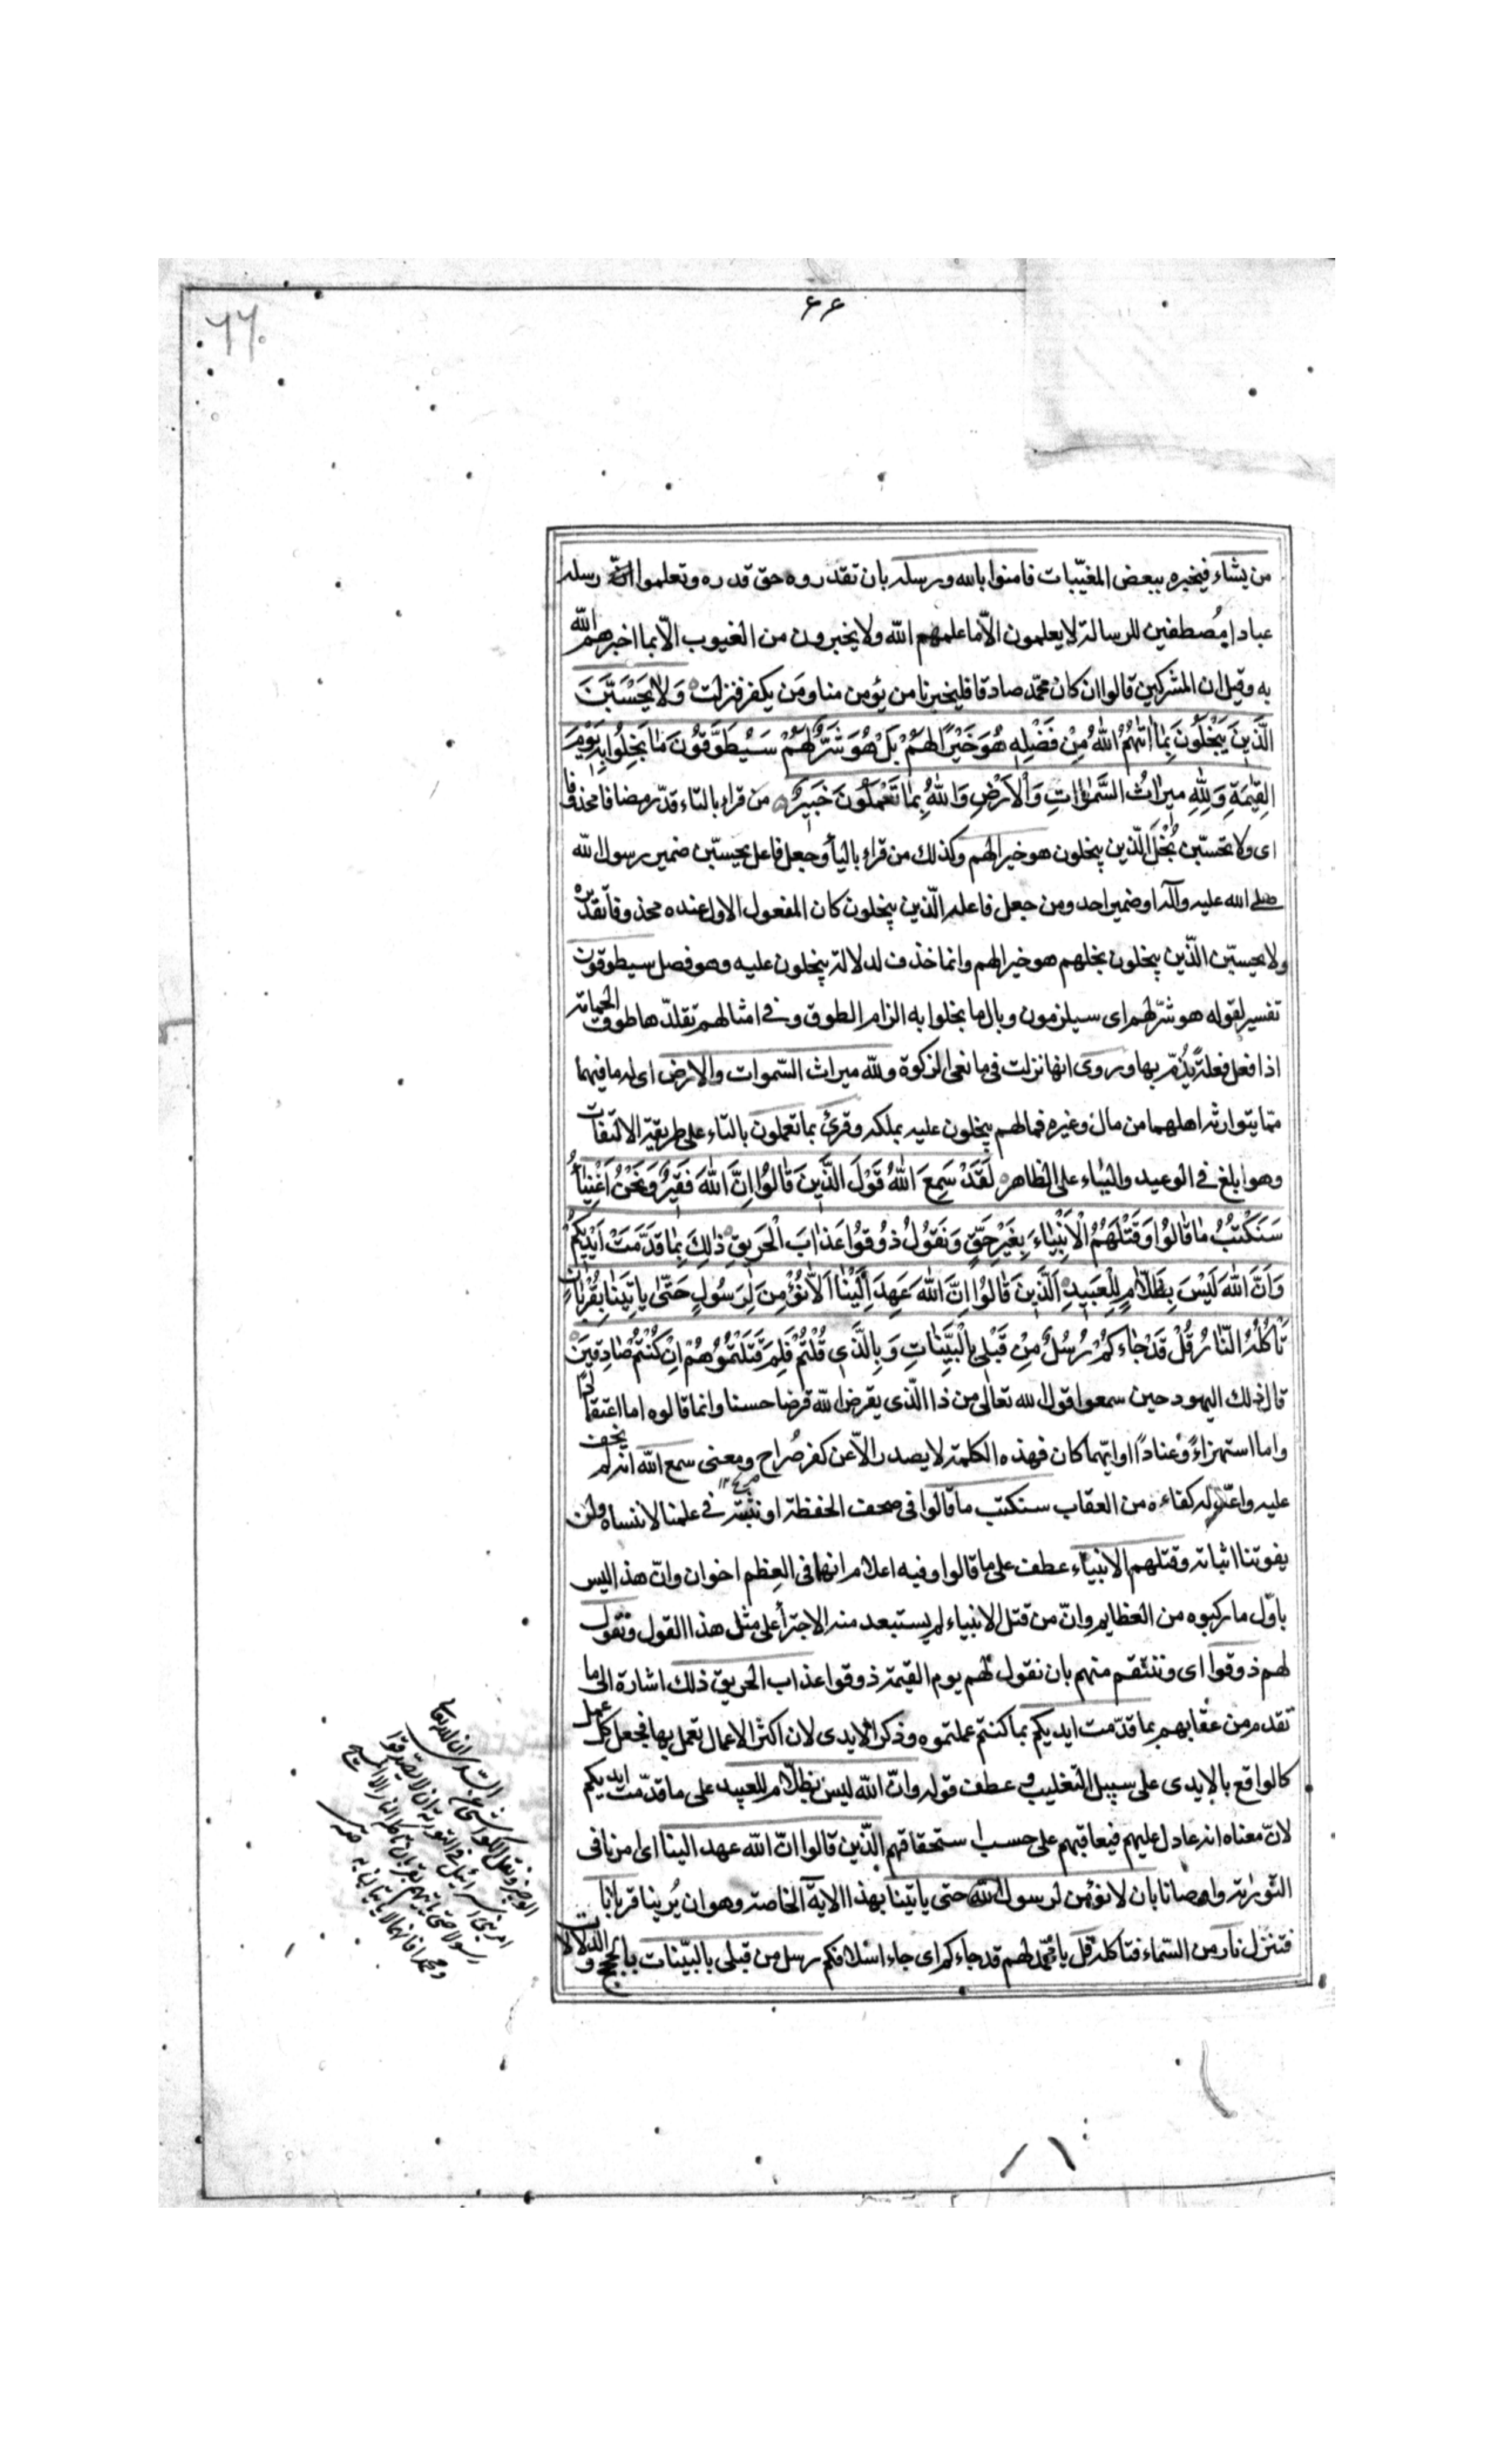 ٦٦
٦٦
من يشاء فيخبره ببعض المغيّبات فامنوا بالله ورسله بان تقدروه حق قدره وتعلموا انّ رسله
عبادا مُصطفين للرسالة لا يعلمون الّا ما علمهم الله ولا يخبرون من الغيوب الّا بما اخبرهم الله
به وقيل ان المشركين قالوا ان كان محمّد صادقا فليخبرنا من يؤمن منا ومَن يكفر فنزلت وَلَا يَحْسَبَّنَ
الَّذِينَ يَبْخَلُونَ بِمَا اٰتٰهُمُ اللّٰهُ مِنْ فَضْلِهِ هُوَ خَيْرًا لَهُمْ بَلْ هُوَ شَرٌّ لَهُمْ سَيُطَوَّقُونَ مَا بَخِلُوا بِهِ يَوْمَ
القِيٰمَةِ وَلِلّٰهِ مِيرَاثُ السَّمٰوَاتِ وَالْاَرْضِ وَاللّٰهُ بِمَا تَعْمَلُونَ خَبِيرٌ من قراء بالتاء قدّر مضافا محذوفا
اى ولا تحسبّن بُخْل الّذين يبخلون هو خيرا لهم وكذلك من قراء باليأ وجعل فاعل يحسبّن ضمير رسول الله
صلى الله عليه وآله او ضمير احد ومن جعل فاعله الّذين يبخلون كان المفعول الاول عنده محذوفا تقديره
ولا يحسبّن الّذين يبخلون بخلهم هو خيرا لهم وانما حذف لدلالة يبخلون عليه وهو فصل سيطوقون
تفسير لقوله هو شرّ لهم اى سيلزمون وبال ما بخلوا به الزام الطوق وفى امثالهم تقلدّها طوق الحمامة
اذا فعل فعلة يُذمّ بها وروى انها نزلت فى مانعى الزكوة ولله ميراث السّموات والارض اى له ما فيهما
ممّا يتوارثه اهلهما من مال وغيره فمالهم يبخلون عليه بملكه وقرئ بما تعملون بالتاء على طريقة الالتفات
وهو ابلغ فى الوعيد والياء على الظاهر لَقَدْ سَمِعَ اللّٰهُ قَوْلَ الَّذِينَ قَالُوا اِنَّ اللّٰهَ فَقِيرٌ وَنَحْنُ اَغْنِيَاُ
سَنَكْتُبُ مَا قَالُوا وَقَتْلَهُمُ الْاَنْبِيَاءَ بِغَيْرِ حَقٍّ وَنَقُولُ ذُوقُوا عَذَابَ الْحَرِيقِ ذٰلِكَ بِمَا قَدَّمَتْ اَيْدِيكُمْ
وَاَنَّ اللّٰهَ لَيْسَ بِظَلَّامٍ لِلْعَبِيدِ اَلَّذِينَ قَالُوا اِنَّ اللّٰهَ عَهِدَ اِلَيْنَا اَلَّا نُؤْمِنَ لِرَسُولٍ حَتّٰى يَاتِيَنَا بِقُرْبَانٍ
تَاْكُلُهُ النَّارُ قُلْ قَدْ جَاءَكُمْ رُسُلٌ مِنْ قَبْلِى بِالْبَيِّنَاتِ وَبِالَّذِى قُلْتُمْ فَلِمَ قَتَلْتُمُوهُمْ اِنْ كُنْتُمْ صَادِقِينَ
قال ذلك اليهود حين سمعوا قول الله تعالى من ذا الّذى يقرض الله قرضا حسنا وانما قالوه اما اعتقادًا
واما استهزاءً وعنادًا او ايّهما كان فهذه الكلمة لا يصدر الّا عن كفر صُراح ومعنى سمع الله انه لم يخف
عليه واعدّ له كفاءه من العقاب سنكتب ما قالوا فى صحف الحفظة او نثبته فى علمنا لا ننساه ولن
يفوتنا اثباته وقتلهم الانبياء عطف على ما قالوا وفيه اعلام انهما فى العِظم اخوان وانّ هذا ليس
باوّل ما ركبوه من العظايم وانّ من قتل الانبياء لم يستبعد منه الاجترأ على مثل هذا القول ونقول
لهم ذوقوا اى وننتقم منهم بان نقول لهم يوم القيمة ذوقوا عذاب الحريق ذلك اشارة الى ما
تقدم من عقابهم بما قدّمت ايديكم بما كنتم عملتموه وذكر الايدى لان اكثر الاعمال تعمل بها فجعل كل عمل
كالواقع بالايدى على سبيل التغليب وعطف قوله وانّ الله ليس بظلّام للعبيد على ما قدّمت ايديكم
لانّ معناه انه عادل عليهم فيعاقبهم على حسب استحقاقهم الّذين قالوا انّ الله عهد الينا اى امرنا فى
التورية واوصانا بان لا نؤمن لرسول الله حتى ياتينا بهذا الاية الخاصة وهو ان يُرينا قربانا
فتنزل نار من السّماء فتاكله قل يا محمّد لهم قد جاءكم اى جاء اسلافكم رسل من قبلى بالبيّنات بالحجج والدلالات
السّدى ان الله تعالى
امر بنى اسرائيل فى التورية ان لا تصدقوا
رسولا حتى ياتيهم بقربان تاكله النار الا المسيح
ومحمدا فانهما لا ياتيان به